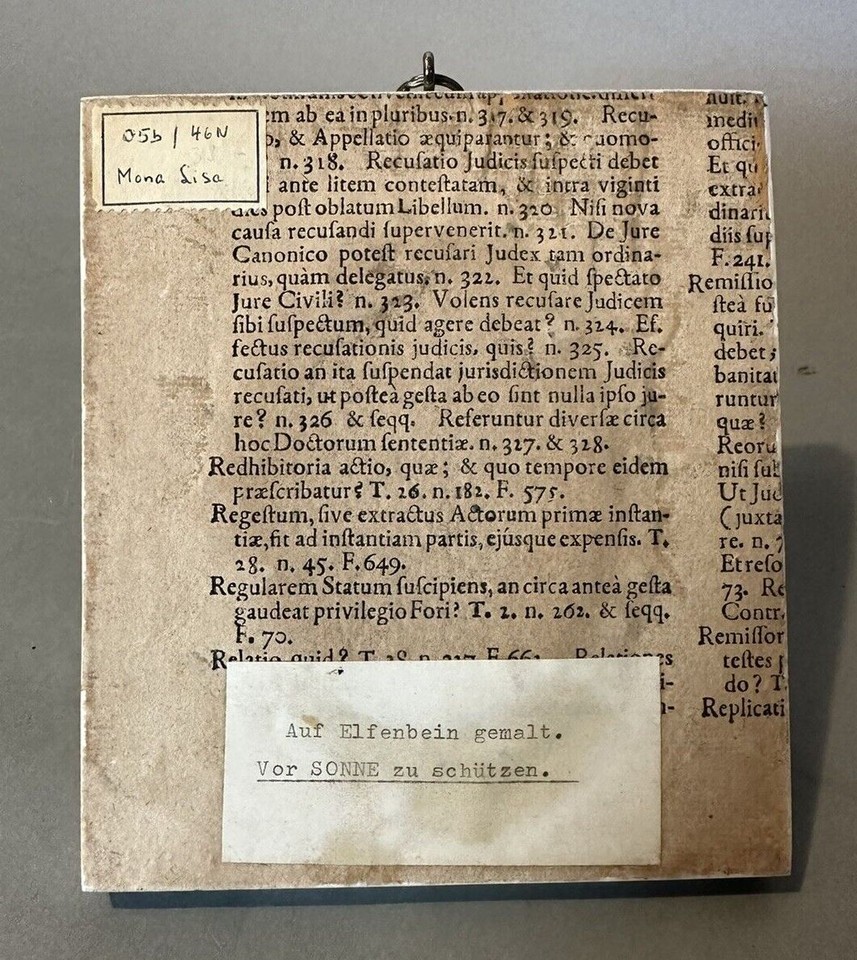 05b / 46N
Mona Lisa
em ab ea in pluribus. n. 317. & 319. Recu-
& Appellatio æquiparantur; &
n. 318. Recuſatio Judicis ſuſpecti debet
ante litem conteſtatam, & intra viginti
dies poſt oblatum Libellum. n. 320. Niſi nova
cauſa recuſandi ſupervenerit. n. 321. De Jure
Canonico poteſt recuſari Judex tam ordina-
rius, quàm delegatus, n. 322. Et quid ſpectato
Jure Civili? n. 323. Volens recuſare Judicem
ſibi ſuſpectum, quid agere debeat? n. 324. Ef.
fectus recuſationis judicis, quis? n. 325. Re-
cuſatio an ita ſuſpendat jurisdictionem Judicis
recuſati, ut poſteà geſta ab eo ſint nulla ipſo ju-
re? n. 326 & ſeqq. Referuntur diverſæ circa
hoc Doctorum ſententiæ. n. 327. & 328.
Redhibitoria actio, quæ; & quo tempore eidem
præſcribatur? T. 26. n. 182. F. 575.
Regeſtum, ſive extractus Actorum primæ inſtan-
tiæ, fit ad inſtantiam partis, ejúsque expenſis. T.
28. n. 45. F. 649.
Regularem Statum ſuſcipiens, an circa anteà geſta
gaudeat privilegio Fori? T. 2. n. 262. & ſeqq.
F. 70.
Relatio quid? T. 28. n. 227. F. 661. Relationes
medi
offici
Et qu
extra
dinari
diis ſuſ
F. 241.
Remiſſio
ſteà fu
quiri.
debet;
banitat
runtur
quæ?
Reoru
niſi ſuſ
Ut Jud
(juxta
re. n. 7
Et reſo
73. Re
Contr.
Remiſſor
teſtes
do? T.
Replicati
Auf Elfenbein gemalt.
Vor SONNE zu schützen.